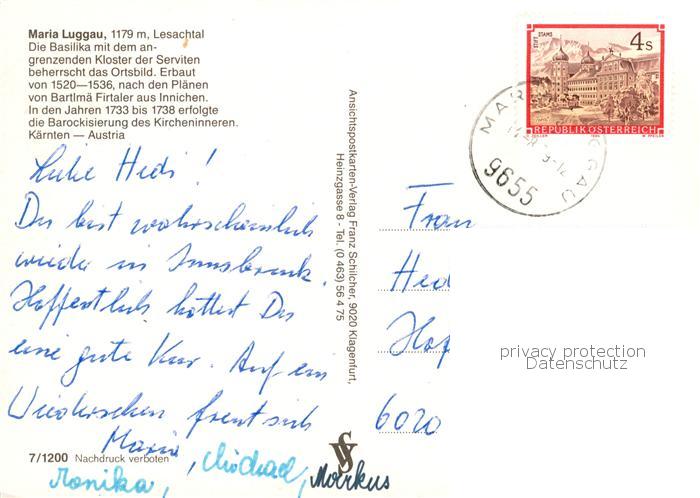 Maria Luggau, 1179 m, Lesachtal
Die Basilika mit dem an-
grenzenden Kloster der Serviten
beherrscht das Ortsbild. Erbaut
von 1520—1536, nach den Plänen
von Bartlmä Firtaler aus Innichen.
In den Jahren 1733 bis 1738 erfolgte
die Barockisierung des Kircheninneren.
Kärnten — Austria
Liebe Hedi!
Du bist wahrscheinlich
wieder in Innsbruck.
Hoffentlich hattest Du
eine gute Kur. Auf ein
Wiedersehen freut sich
Maria, Michael, Markus
Monika,
7/1200 Nachdruck verboten
Ansichtspostkarten-Verlag Franz Schilcher, 9020 Klagenfurt,
Heinzgasse 8 - Tel. (0 463) 56 4 75
STIFT STAMS
4s
REPUBLIK ÖSTERREICH
9655
Frau
Hed
Hof
6020
privacy protection
Datenschutz